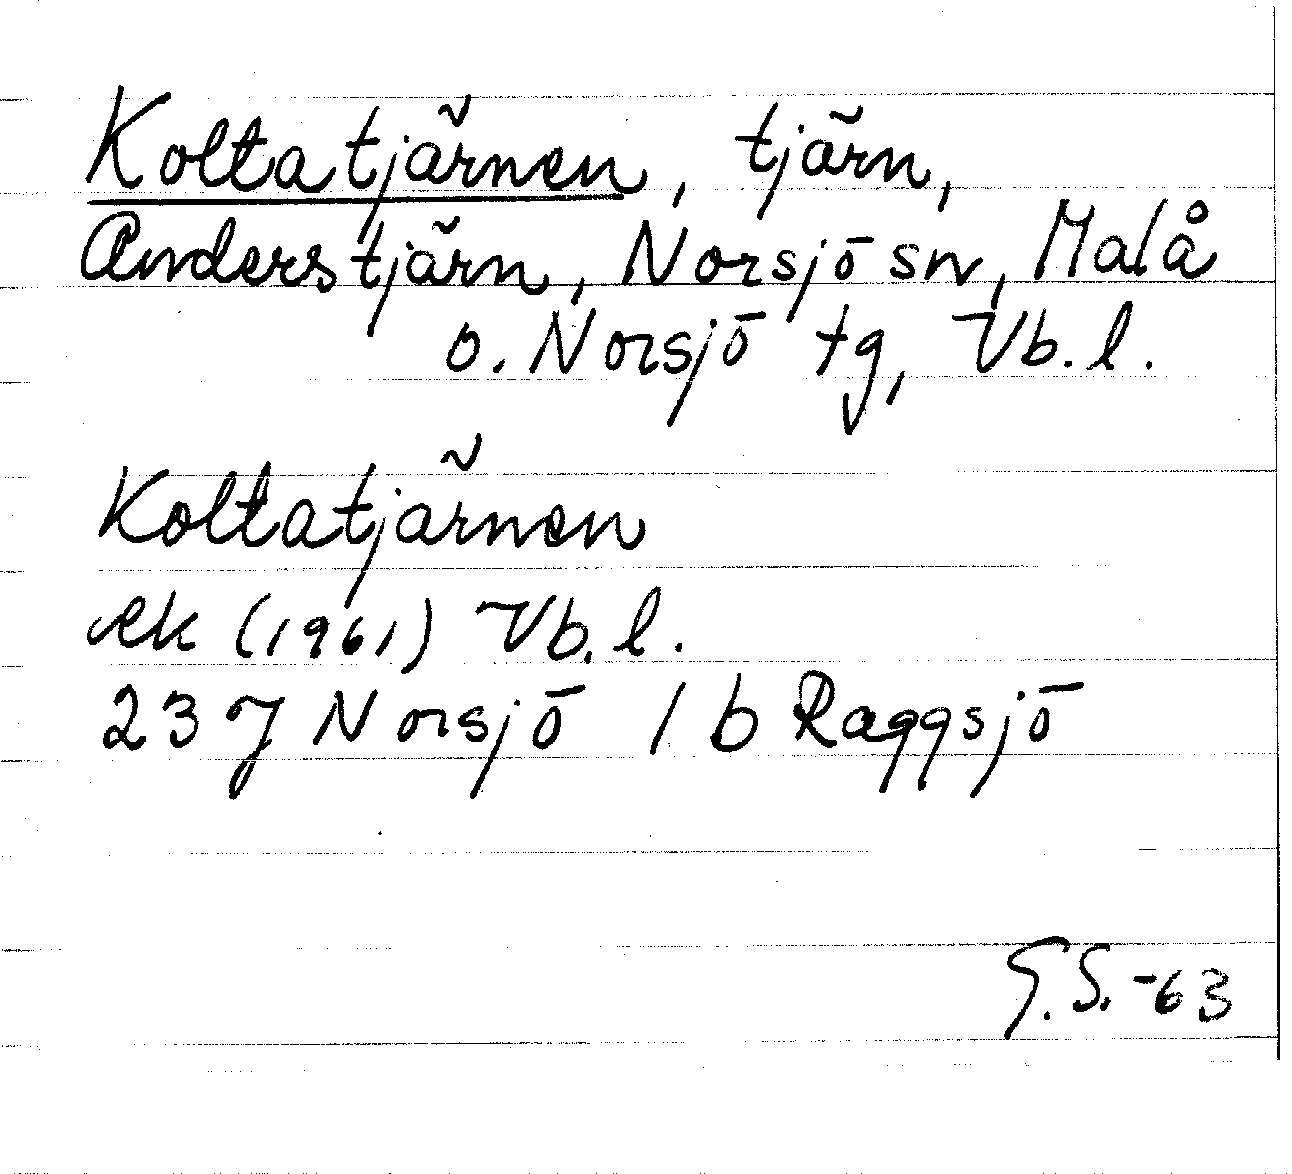 Koltatjärnen, tjärn,
Anderstjärn, Norsjö sn, Malå
o. Norsjö tg, Vb. l.
Koltatjärnen
ek (1961) Vb. l.
23 J Norsjö 1 b Raggsjö
G. S. -63